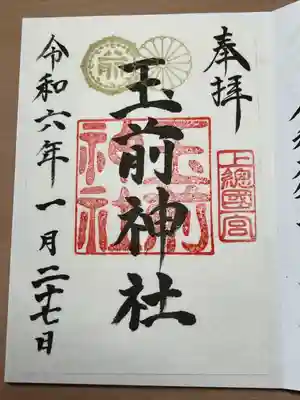 奉拝
上總國一宮
玉前神社
玉前神社
令和六年一月二十七日